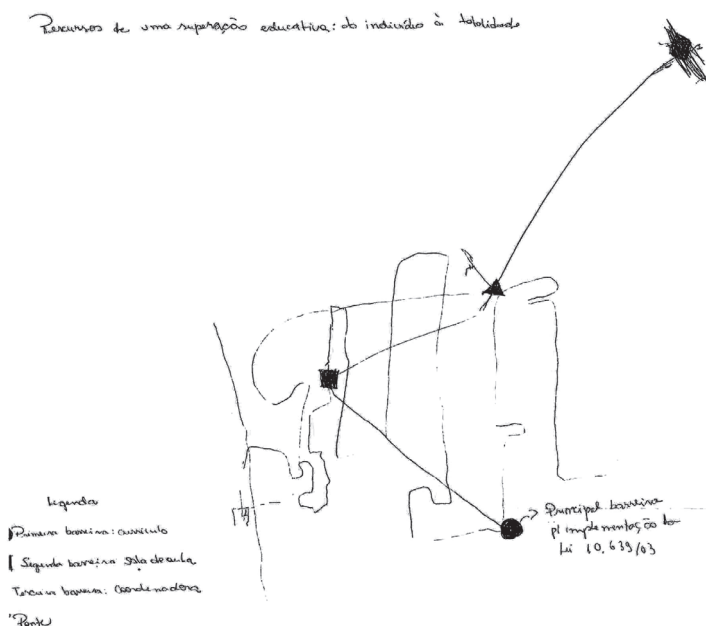 Percursos de uma superação educativa: do indivíduo à totalidade
Principal barreira
p/ implementação da
Lei 10.639/03
Legenda
Primeira barreira: currículo
Segunda barreira sala de aula
Terceira barreira: Coordenadora
Ponte